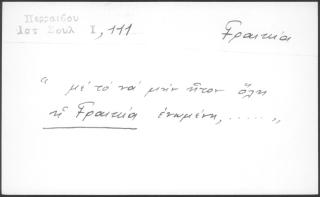 Περραιβου
Ιστ Σουλ Ι, 111
Γραικία
“ μὲ τὸ νὰ μὴν ἦτον ὅλη
ἡ Γραικία ἑνωμένη, ..... „